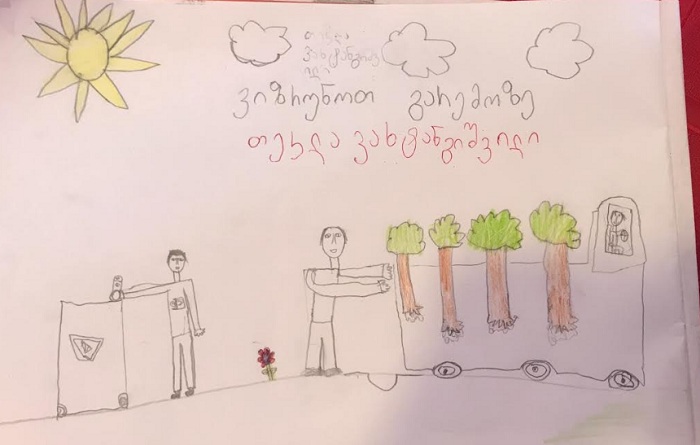 ვიზრუნოთ გარემოზე
თეკლა ვახტანგიშვილი